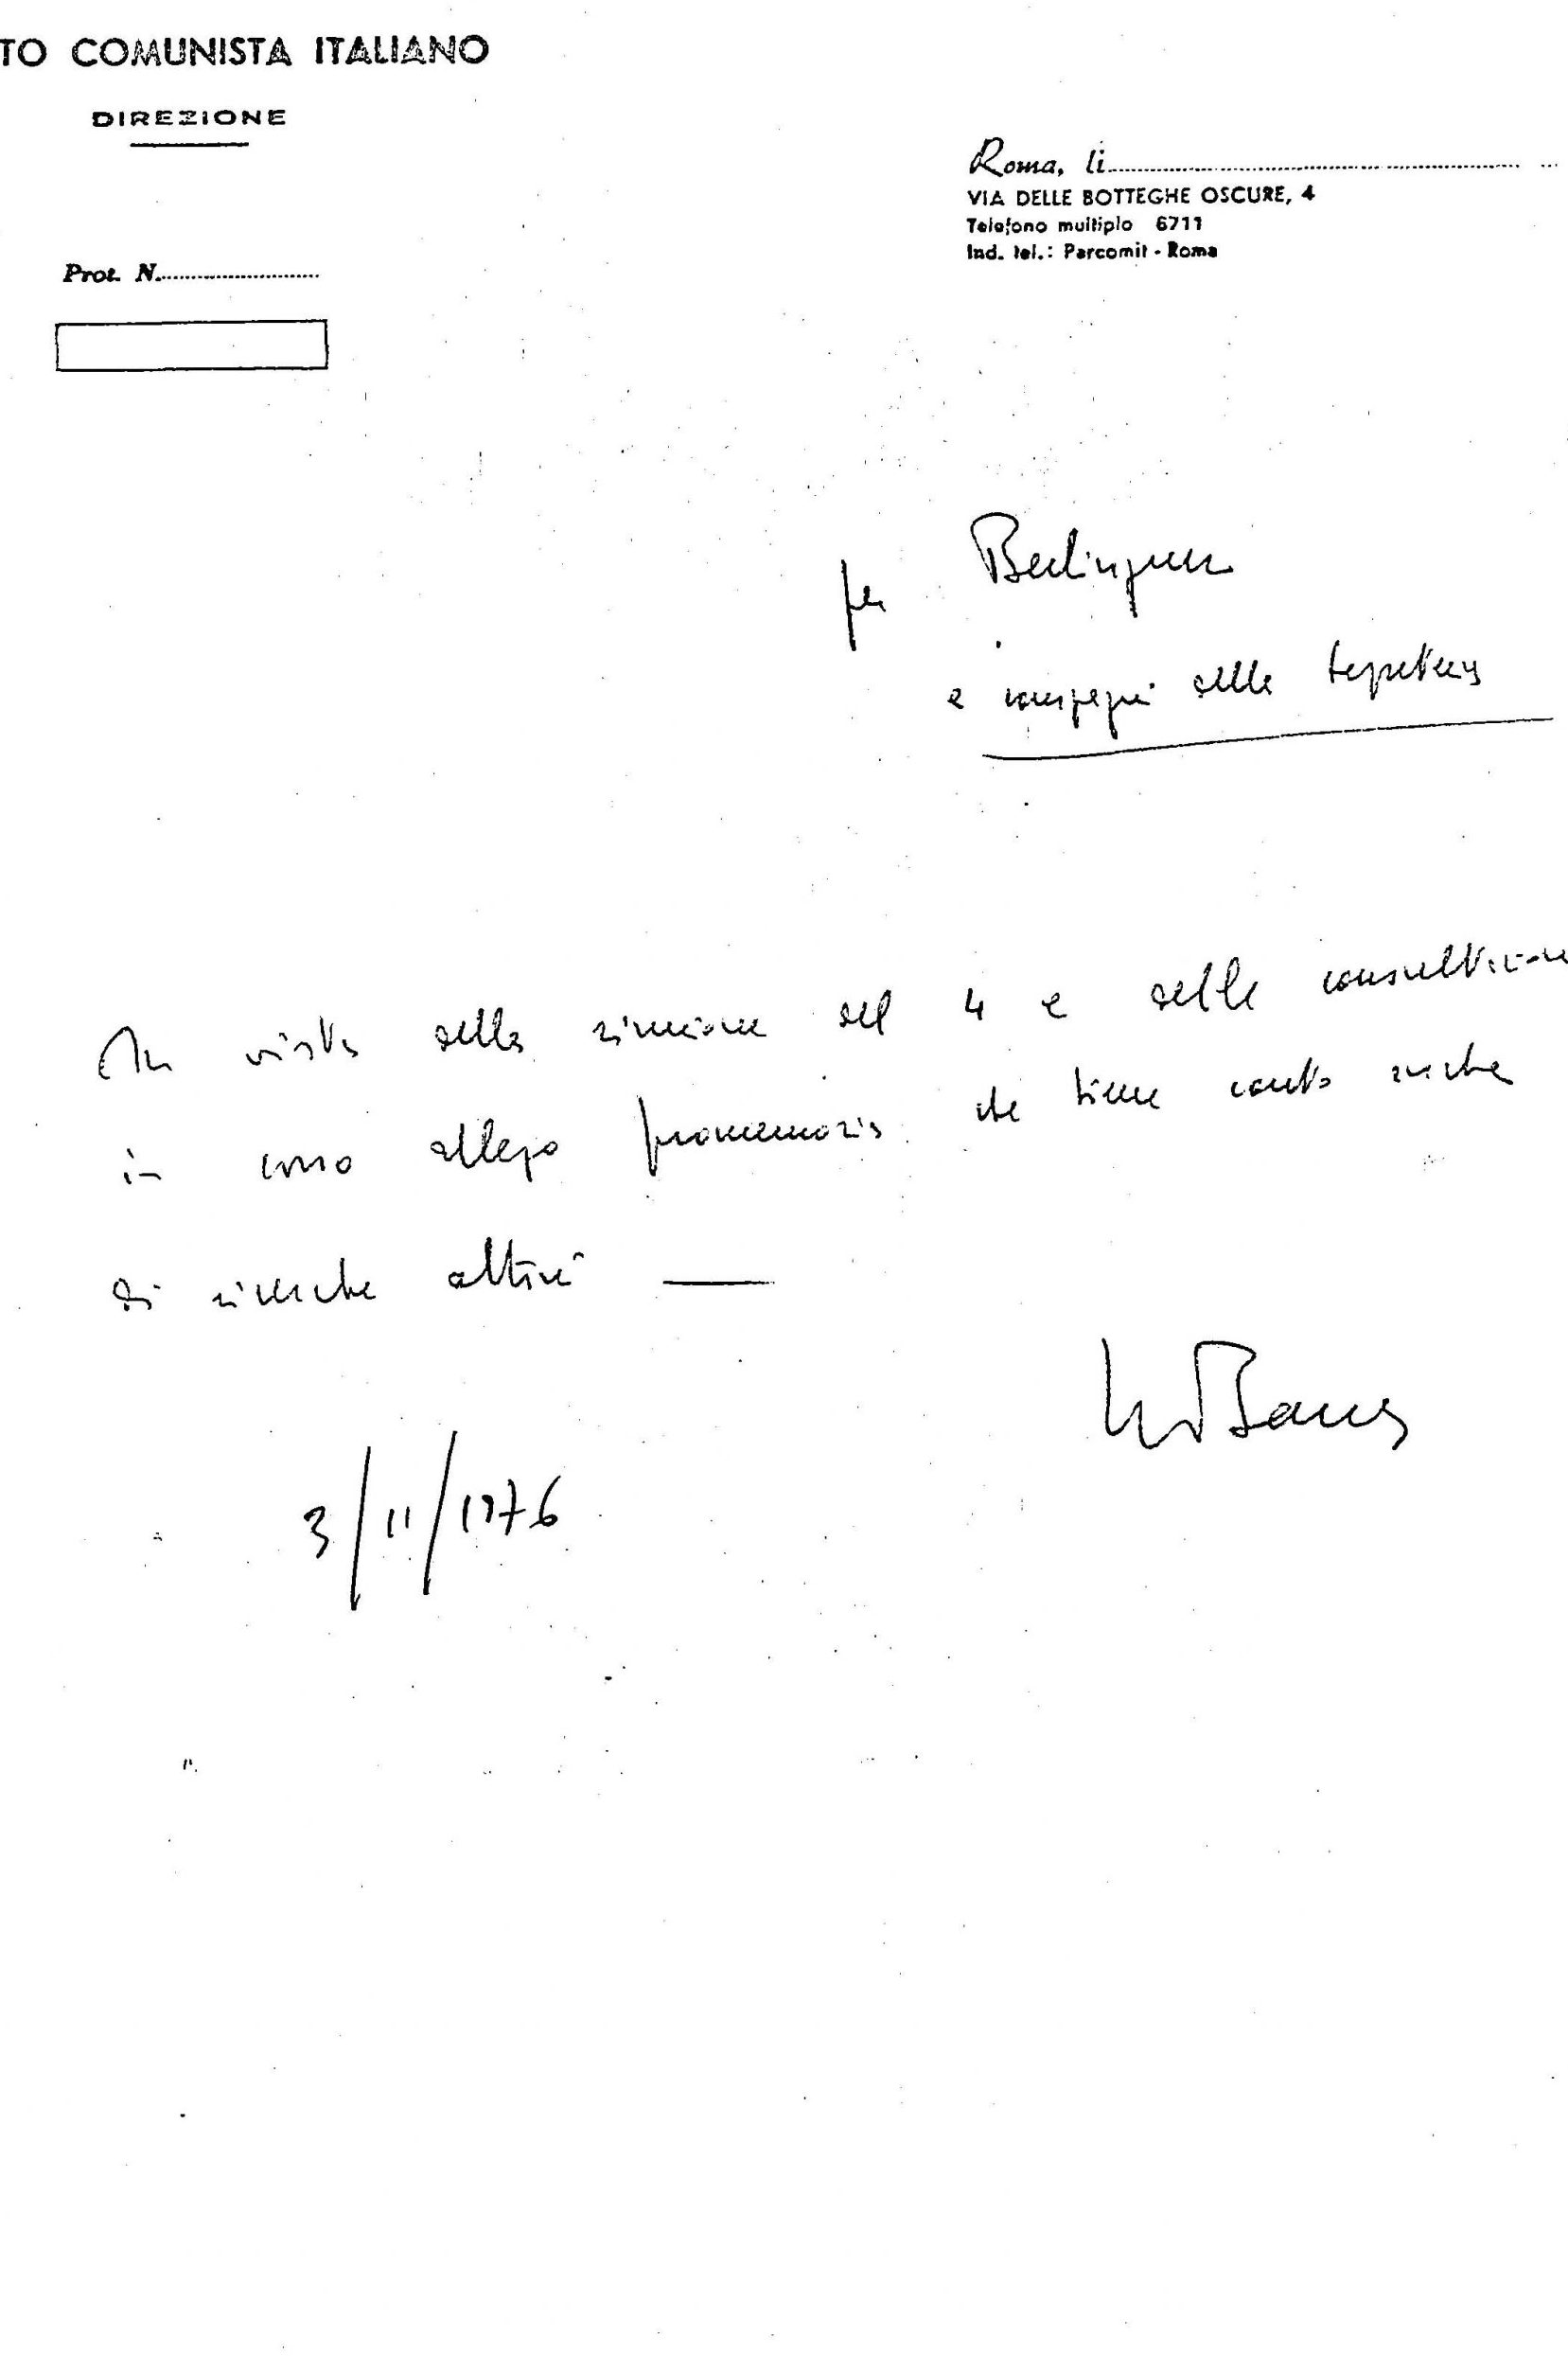 TO COMUNISTA ITALIANO
DIREZIONE
Roma, li
VIA DELLE BOTTEGHE OSCURE, 4
Telefono multiplo 6711
Ind. tel.: Parcomit - Roma
Prot. N.
per Berlinguer
e compagni della segreteria
In vista della riunione del 4 e delle consultazioni
in corso allego promemoria che tiene conto anche
di ricerche
3/11/1976